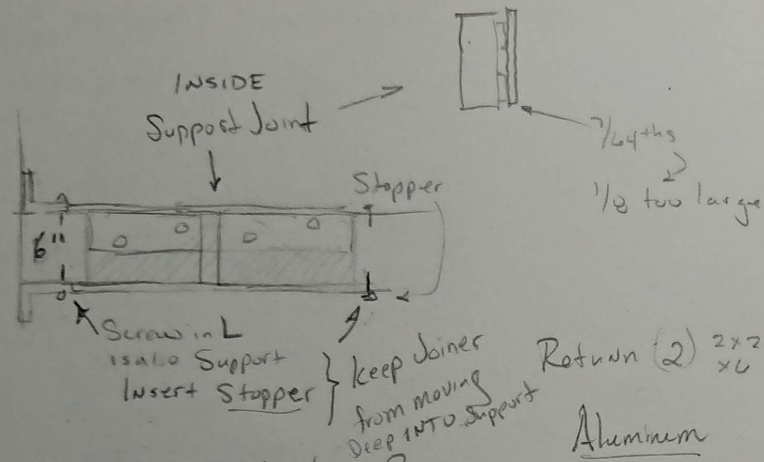 INSIDE
Support Joint
7/64ths
1/8 too large
Stopper
6"
Screw in L
is also Support
Insert Stopper
Keep Joiner
from moving
Deep INTO Support
Return (2) 2x2
x6
Aluminum